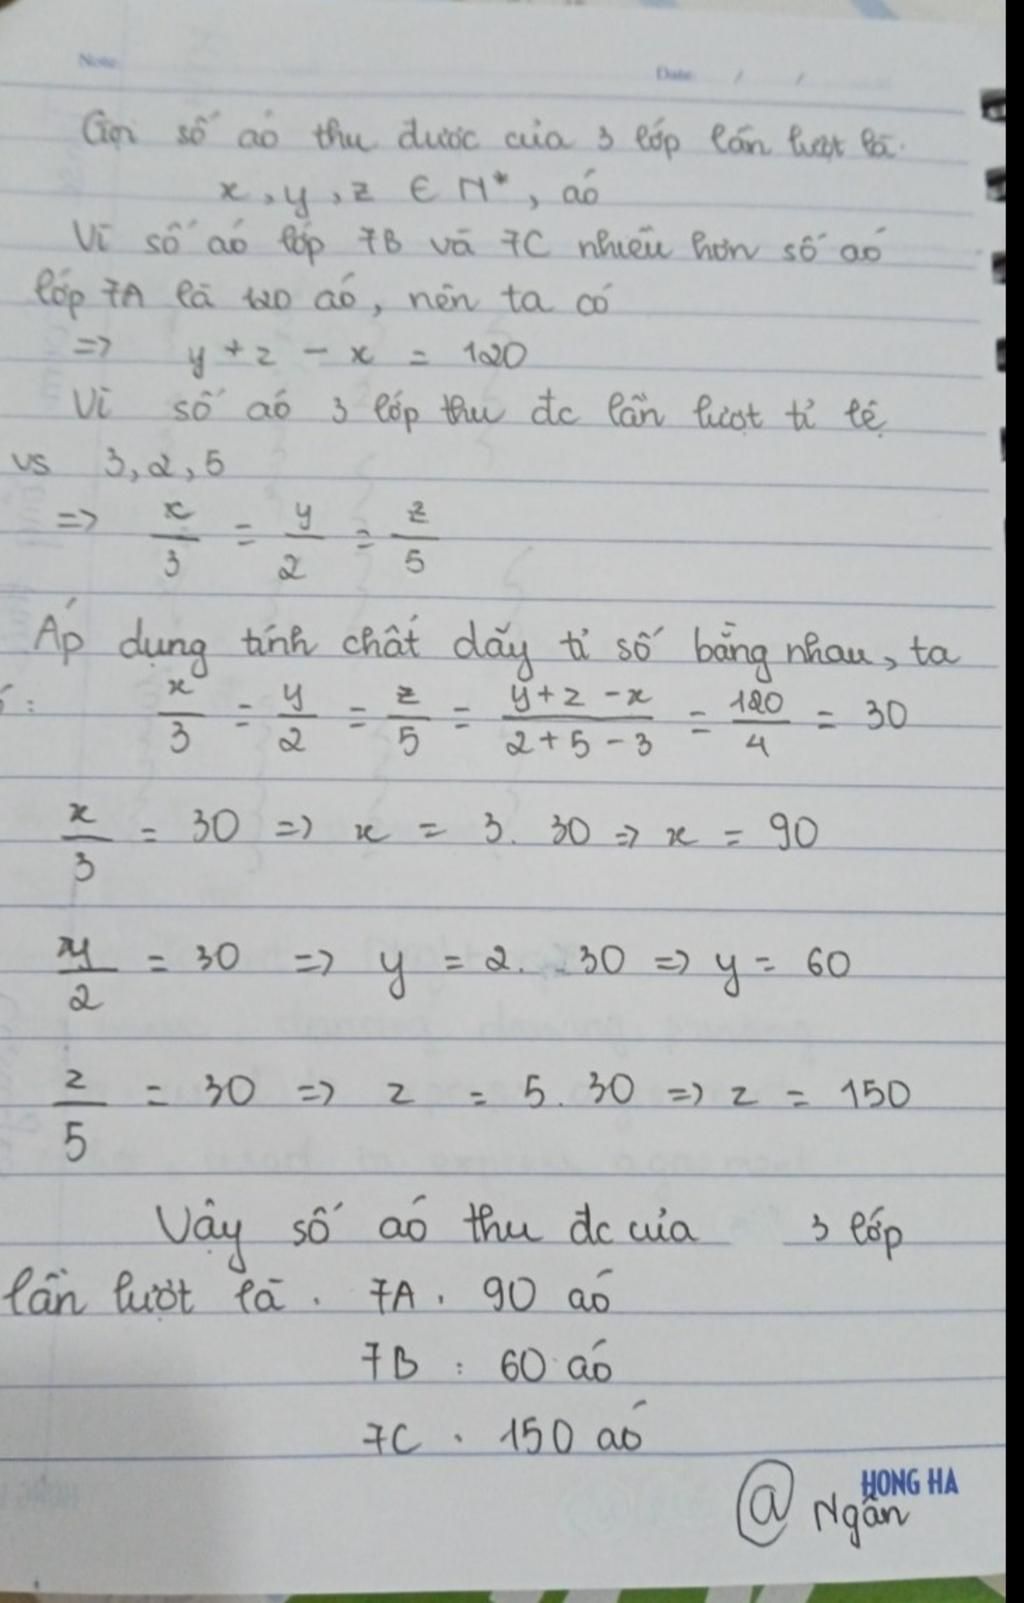 Note
Date / /
Gọi số áo thu được của 3 lớp lần lượt là.
x, y, z ∈ N*, áo
Vì số áo lớp 7B và 7C nhiều hơn số áo
lớp 7A là 120 áo, nên ta có
=> y + z - x = 120
Vì số áo 3 lớp thu đc lần lượt tỉ lệ
vs 3, 2, 5
=> x/3 = y/2 = z/5
Áp dụng tính chất dãy tỉ số bằng nhau, ta
: x/3 = y/2 = z/5 = (y + z - x)/(2 + 5 - 3) = 120/4 = 30
x/3 = 30 => x = 3. 30 => x = 90
y/2 = 30 => y = 2. 30 => y = 60
z/5 = 30 => z = 5. 30 => z = 150
Vậy số áo thu đc của 3 lớp
lần lượt là. 7A. 90 áo
7B : 60 áo
7C. 150 áo
HONG HA
@ Ngân